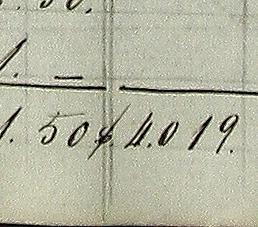 . 50.
1. –
1. 50 $. 4.019.